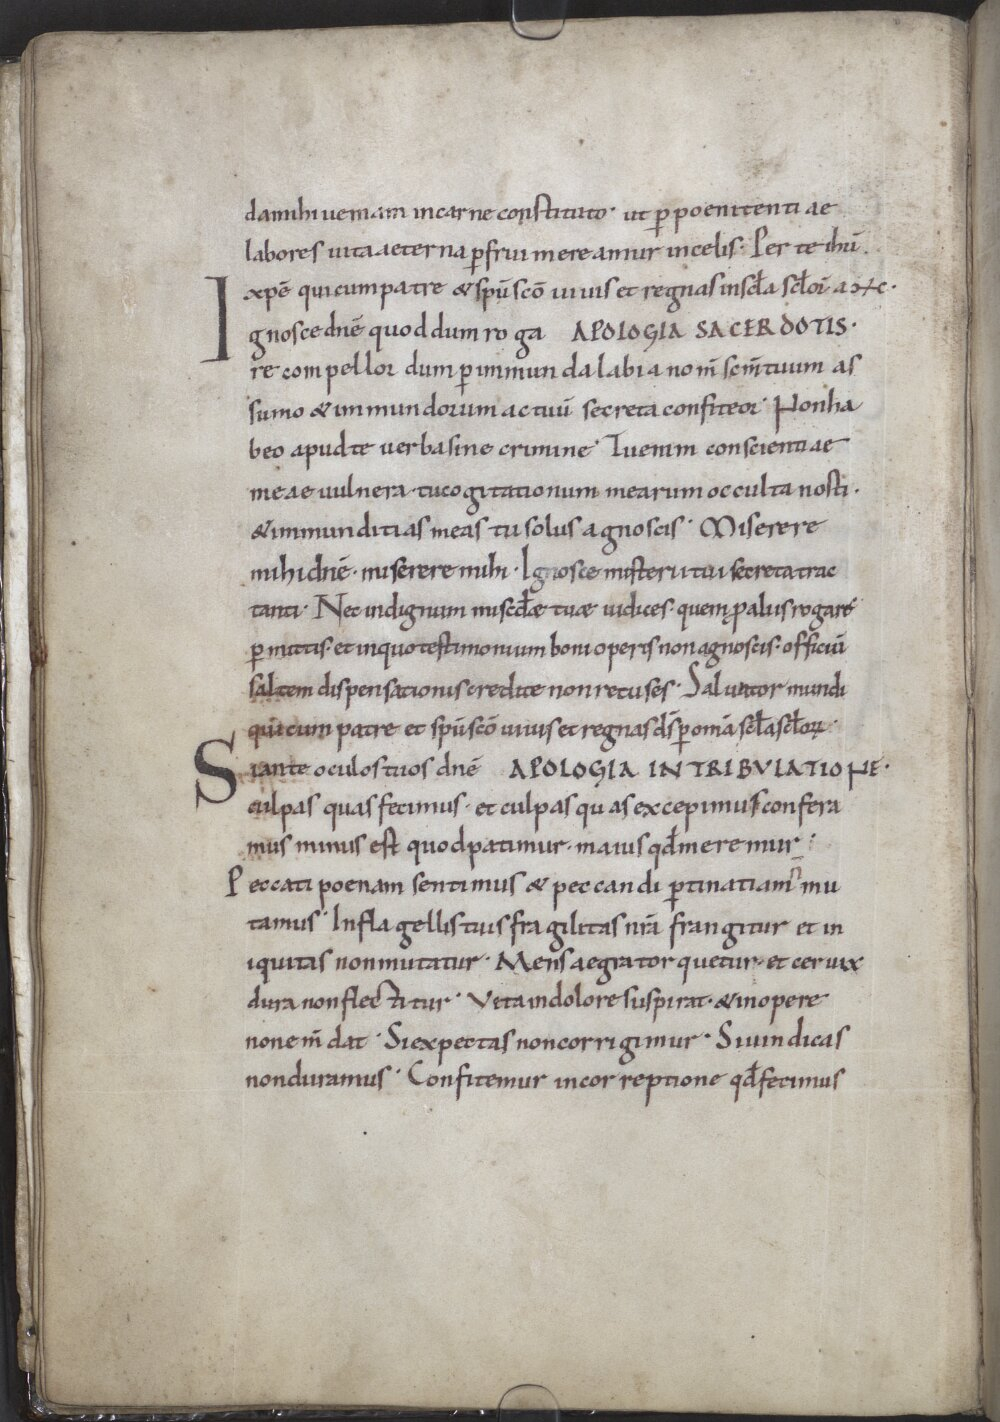 da mihi ueniam in carne constituto · ut ꝑ poenitentiae
labores uita aeterna ꝑfrui mereamur in celis · Per te ihū
xpē qui cum patre & spū scō uiuis et regnas in scl̄a scl̄oꝝ
Ignosce dnē quod dum roga APOLOGIA SACERDOTIS ·
re compellor dum ꝑ inmunda labia nom̄ scm̄ tuum as
sumo & inmundorum actuū secreta confiteor · Non ha
beo apud te uerba sine crimine · Tu enim conscientiae
meae uulnera · tu cogitationum mearum occulta nosti ·
& inmunditias meas tu solus agnoscis · Miserere
mihi dnē · miserere mihi · Ignosce misterii tui secreta trac
tanti · Nec indignum miscd̄æ tuæ iudices · quem ꝑ alus rogare
ꝑmittis · et in quo testimonium boni operis non agnoscis · officiū
saltem dispensationis credite non recuses · Saluator mundi
qui cum patre et spū scō uiuis et regnas ds̄ ꝑ omā scl̄a scl̄oꝝ ·
Si ante oculos tuos dnē APOLOGIA IN TRIBVLATIONE ·
culpas quas fecimus · et culpas quas excepimus confera
mus minus est quod patimur · maius qd̄ meremur :
Peccati poenam sentimus & peccandi ꝑtinatiam n̄ mu
tamus · In flagellis tuis fragilitas nrā frangitur et in
iquitas non mutatur · Mens aegra torquetur · et ceruix
dura non flectitur · Vita in dolore suspirat · & in opere
non em̄dat · Si expectas non corrigimur · Si uindicas
non duramus · Confitemur in correptione qd̄ fecimus